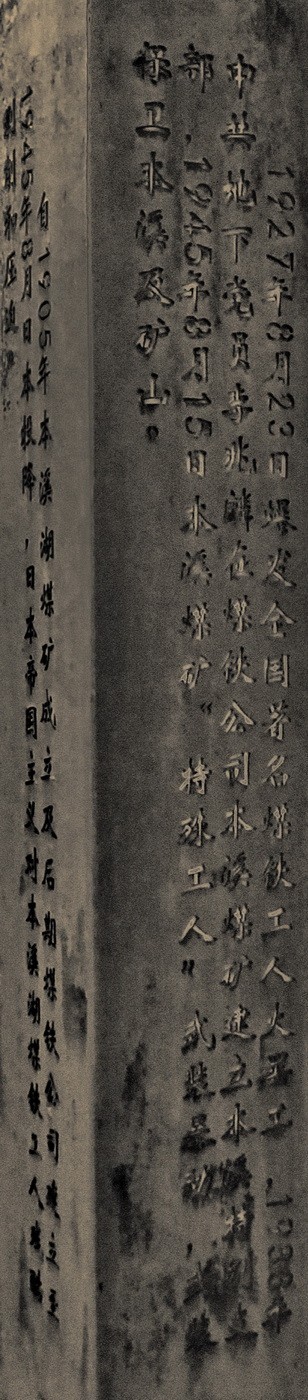 1927年8月23日爆发全国著名煤铁工人大罢工,
中共地下党员李兆麟在煤铁公司本溪煤矿建立本溪特别支
部,1945年8月15日本溪煤矿“特殊工人”武装暴动,武装
保卫本溪及矿山。
自1905年本溪湖煤矿成立及后期煤铁公司成立至
1945年8月日本投降,日本帝国主义对本溪湖煤铁工人残酷
剥削和压迫。